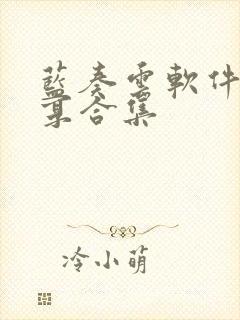 藍奏雲軟件
集合集
冷小萌